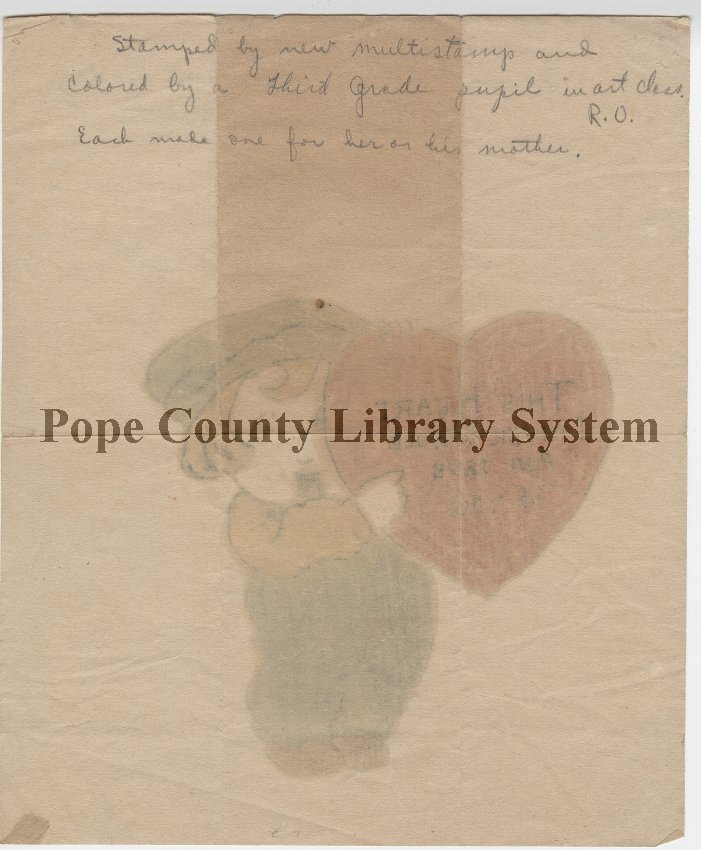 Stamped by new multistamp and
colored by a third grade pupil in art class.
R. O.
Each make one for her or his mother.
Pope County Library System
THIS HEART